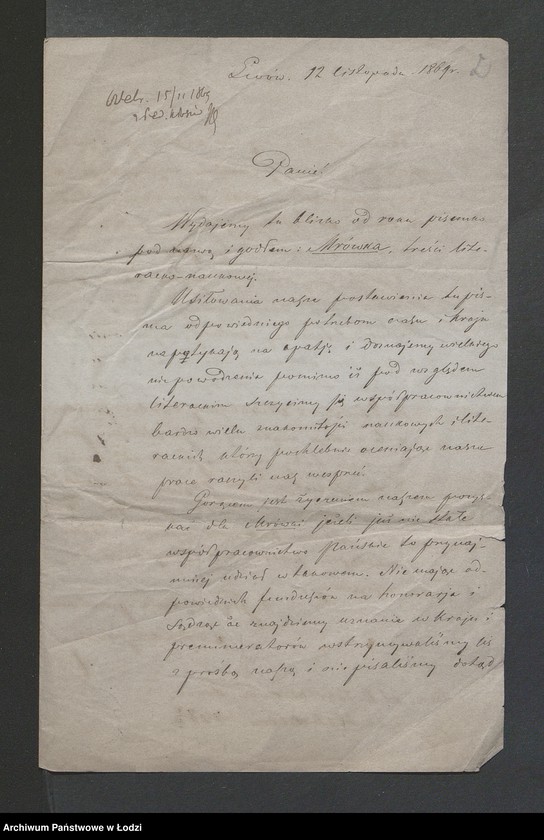 Lwów. 12 listopada. 1869r. 2
Odeb. 15/11 1869
Panie!
Wydajemy tu blizko od roku pisemko
pod nazwą i godłem: Mrówka, treści lite-
racko-naukowej.
Usiłowania nasze postawienia tu pis-
ma odpowiedniego potrzebom czasu i kraju
napotykają na apatją i doznajemy wielkiego
niepowodzenia pomimo iż pod względem
literackim szczycimy się współpracownictwem
bardzo wielu znakomitości naukowych i lite-
rackich, którzy pochlebnie oceniając naszą
pracę raczyli nas wesprzeć.
Gorącem jest życzeniem naszem pozys-
kać dla Mrówki jeżeli już nie stałe
współpracownictwo Pańskie to przynaj-
mniej udział w takowem. Nie mając od-
powiednich funduszów na honorarja i
sądząc że znajdziemy uznanie w kraju i
prenumeratorów wstrzymywaliśmy się
z prośbą naszą i nie pisaliśmy dotąd
Archiwum Państwowe w Łodzi